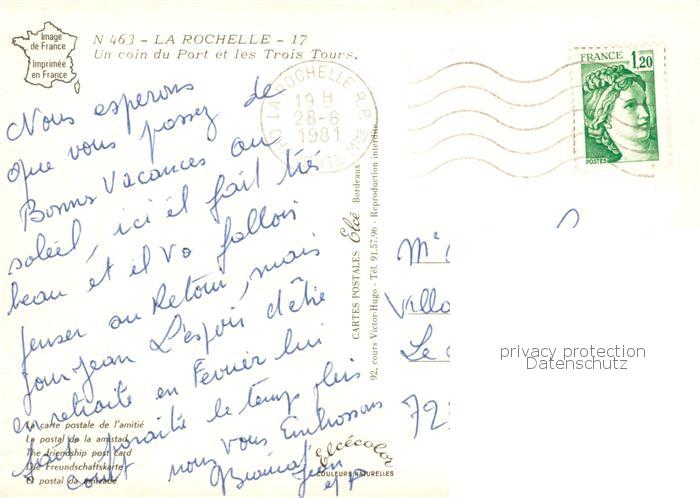 Image
de France
Imprimée
en France
N 463 - LA ROCHELLE - 17
Un coin du Port et les Trois Tours.
LA ROCHELLE R.P.
19 H
28-8
1981
FRANCE 1,20
POSTES
Nous esperons
que vous passez de
Bonnes Vacances au
soleil, ici il fait très
beau et il va falloir
penser au Retour, mais
pour Jean L'espoir d'être
en retraite en Février lui
fait paraître le temps plus
court nous vous Embrassons
Jean
CARTES POSTALES Elcé Bordeaux
92, cours Victor-Hugo - Tél. 91.57.96 - Reproduction interdite
Villa
Le
72
privacy protection
Datenschutz
La carte postale de l'amitié
La postal de la amistad
The friendship post card
Die Freundschaftskarte
O postal da amizade
Elcécolor
COULEURS NATURELLES